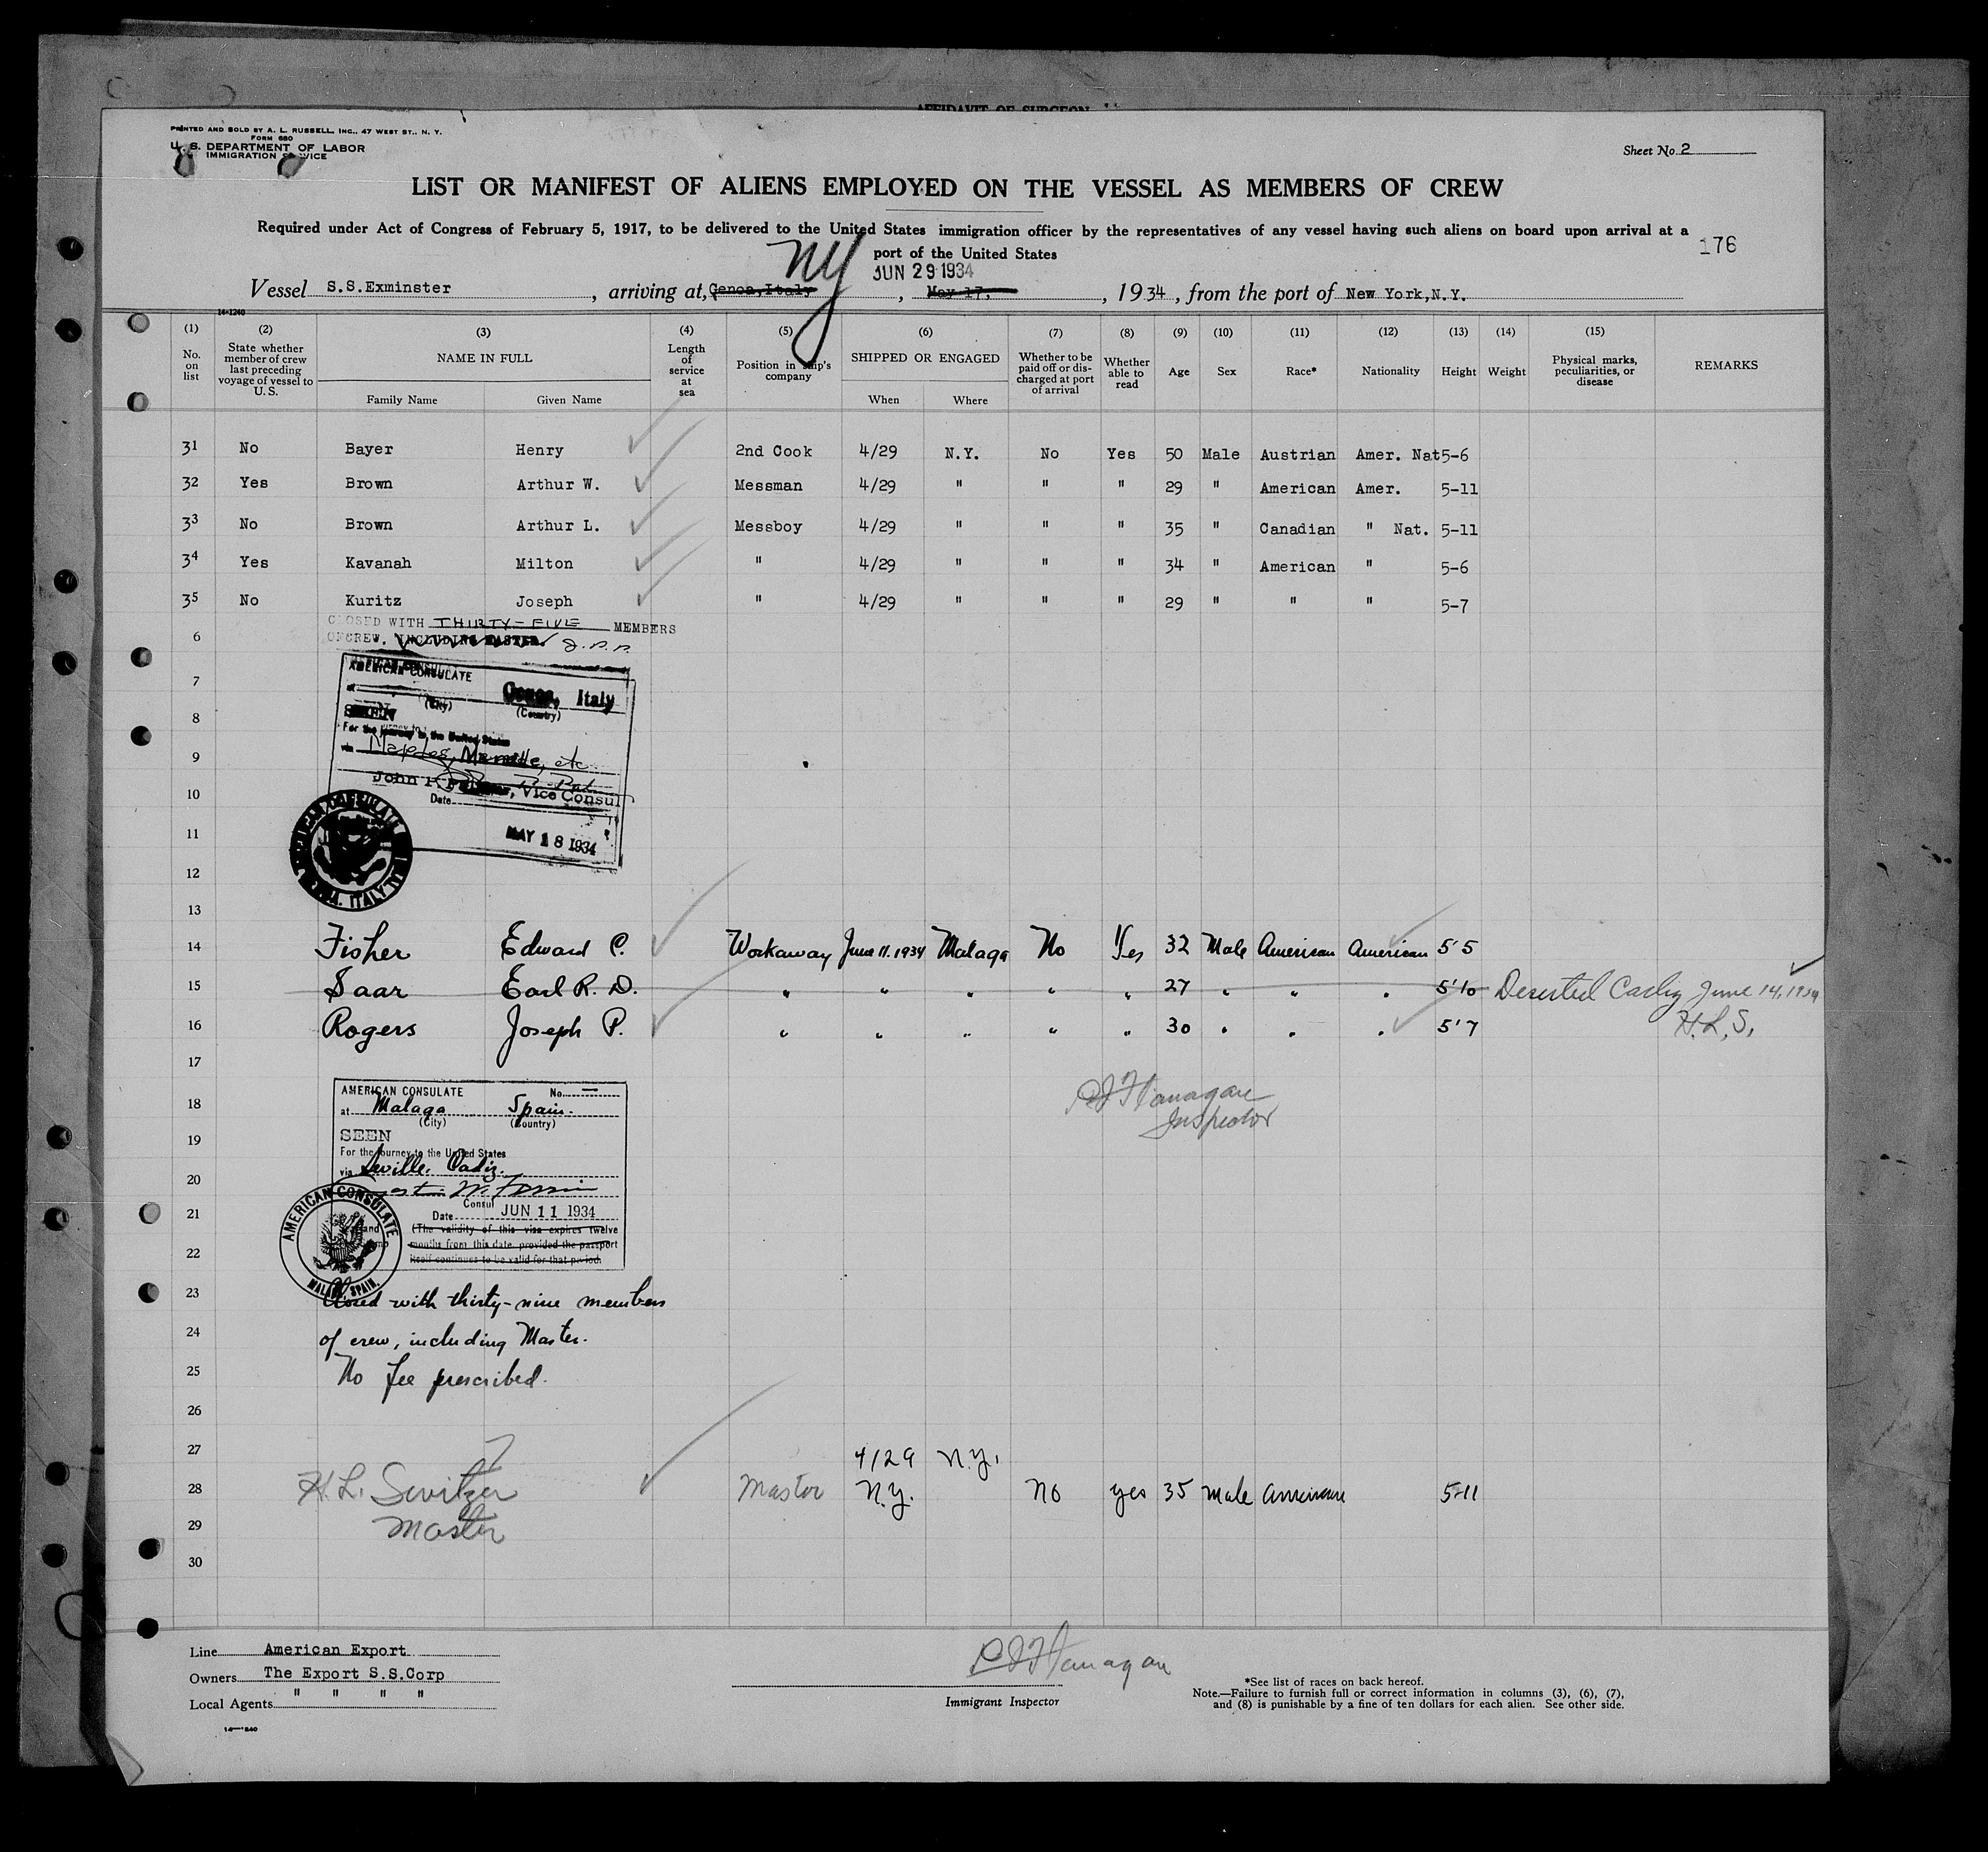 AFFIDAVIT OF SURGEON
PRINTED AND SOLD BY A. L. RUSSELL, INC., 47 WEST ST., N. Y.
FORM 680
U. S. DEPARTMENT OF LABOR
IMMIGRATION SERVICE
Sheet No. 2
LIST OR MANIFEST OF ALIENS EMPLOYED ON THE VESSEL AS MEMBERS OF CREW
Required under Act of Congress of February 5, 1917, to be delivered to the United States immigration officer by the representatives of any vessel having such aliens on board upon arrival at a
port of the United States
176
NY
JUN 29 1934
Vessel S.S.Exminster, arriving at, Genoa,Italy, May 17, 1934, from the port of New York,N.Y.
14-1240
(1) (2) (3) (4) (5) (6) (7) (8) (9) (10) (11) (12) (13) (14) (15)
No. on list
State whether member of crew last preceding voyage of vessel to U. S.
NAME IN FULL
Family Name Given Name
Length of service at sea
Position in ship's company
SHIPPED OR ENGAGED
When Where
Whether to be paid off or discharged at port of arrival
Whether able to read
Age Sex Race* Nationality Height Weight
Physical marks, peculiarities, or disease
REMARKS
31 No Bayer Henry 2nd Cook 4/29 N.Y. No Yes 50 Male Austrian Amer. Nat 5-6
32 Yes Brown Arthur W. Messman 4/29 " " " 29 " American Amer. 5-11
33 No Brown Arthur L. Messboy 4/29 " " " 35 " Canadian " Nat. 5-11
34 Yes Kavanah Milton " 4/29 " " " 34 " American " 5-6
35 No Kuritz Joseph " 4/29 " " " 29 " " " 5-7
CLOSED WITH THIRTY-FIVE MEMBERS
6 OF CREW, INCLUDING MASTER.
AMERICAN CONSULATE
7 at Genoa, Italy
(City) (Country)
8 SEEN
For the journey to the United States
9 via Naples, Marseille, etc
10 John P. Vice Consul
Date
11 MAY 18 1934
12
13
14 Fisher Edward C. Workaway June 11. 1934 Malaga No Yes 32 Male American American 5'5
15 Saar Earl R. D. " " " " " 27 " " " 5'10 Deserted Cadiz June 14, 1934
16 Rogers Joseph P. " " " " " 30 " " " 5'7 H.L.S.
17
AMERICAN CONSULATE No. —
18 at Malaga Spain.
(City) (Country)
Flanagan
Inspector
19 SEEN
For the journey to the United States
via Seville, Cadiz.
20
Consul
21 Date JUN 11 1934
(The validity of this visa expires twelve
22 months from this date, provided the passport
itself continues to be valid for that period.
AMERICAN CONSULATE
MALAGA, SPAIN.
23 Closed with thirty-nine members
24 of crew, including Master.
25 No fee prescribed.
26
27 4/29 N.Y.
28 H.L. Switzer Master N.Y. No yes 35 male American 5-11
29 Master
30
Line American Export
Owners The Export S.S.Corp
Local Agents " " " "
14-1240
Flanagan
Immigrant Inspector
*See list of races on back hereof.
Note.—Failure to furnish full or correct information in columns (3), (6), (7),
and (8) is punishable by a fine of ten dollars for each alien. See other side.